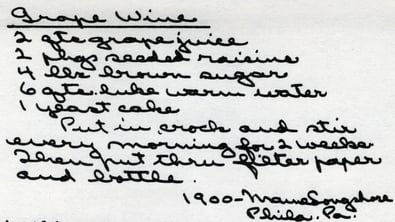 Grape Wine
2 qts grape juice
2 pkgs seeded raisins
4 lbs brown sugar
6 qts. luke warm water
1 yeast cake
Put in crock and stir
every morning for 2 weeks.
Then put thru filter paper
and bottle.
1900-Mame
Phila. Pa.